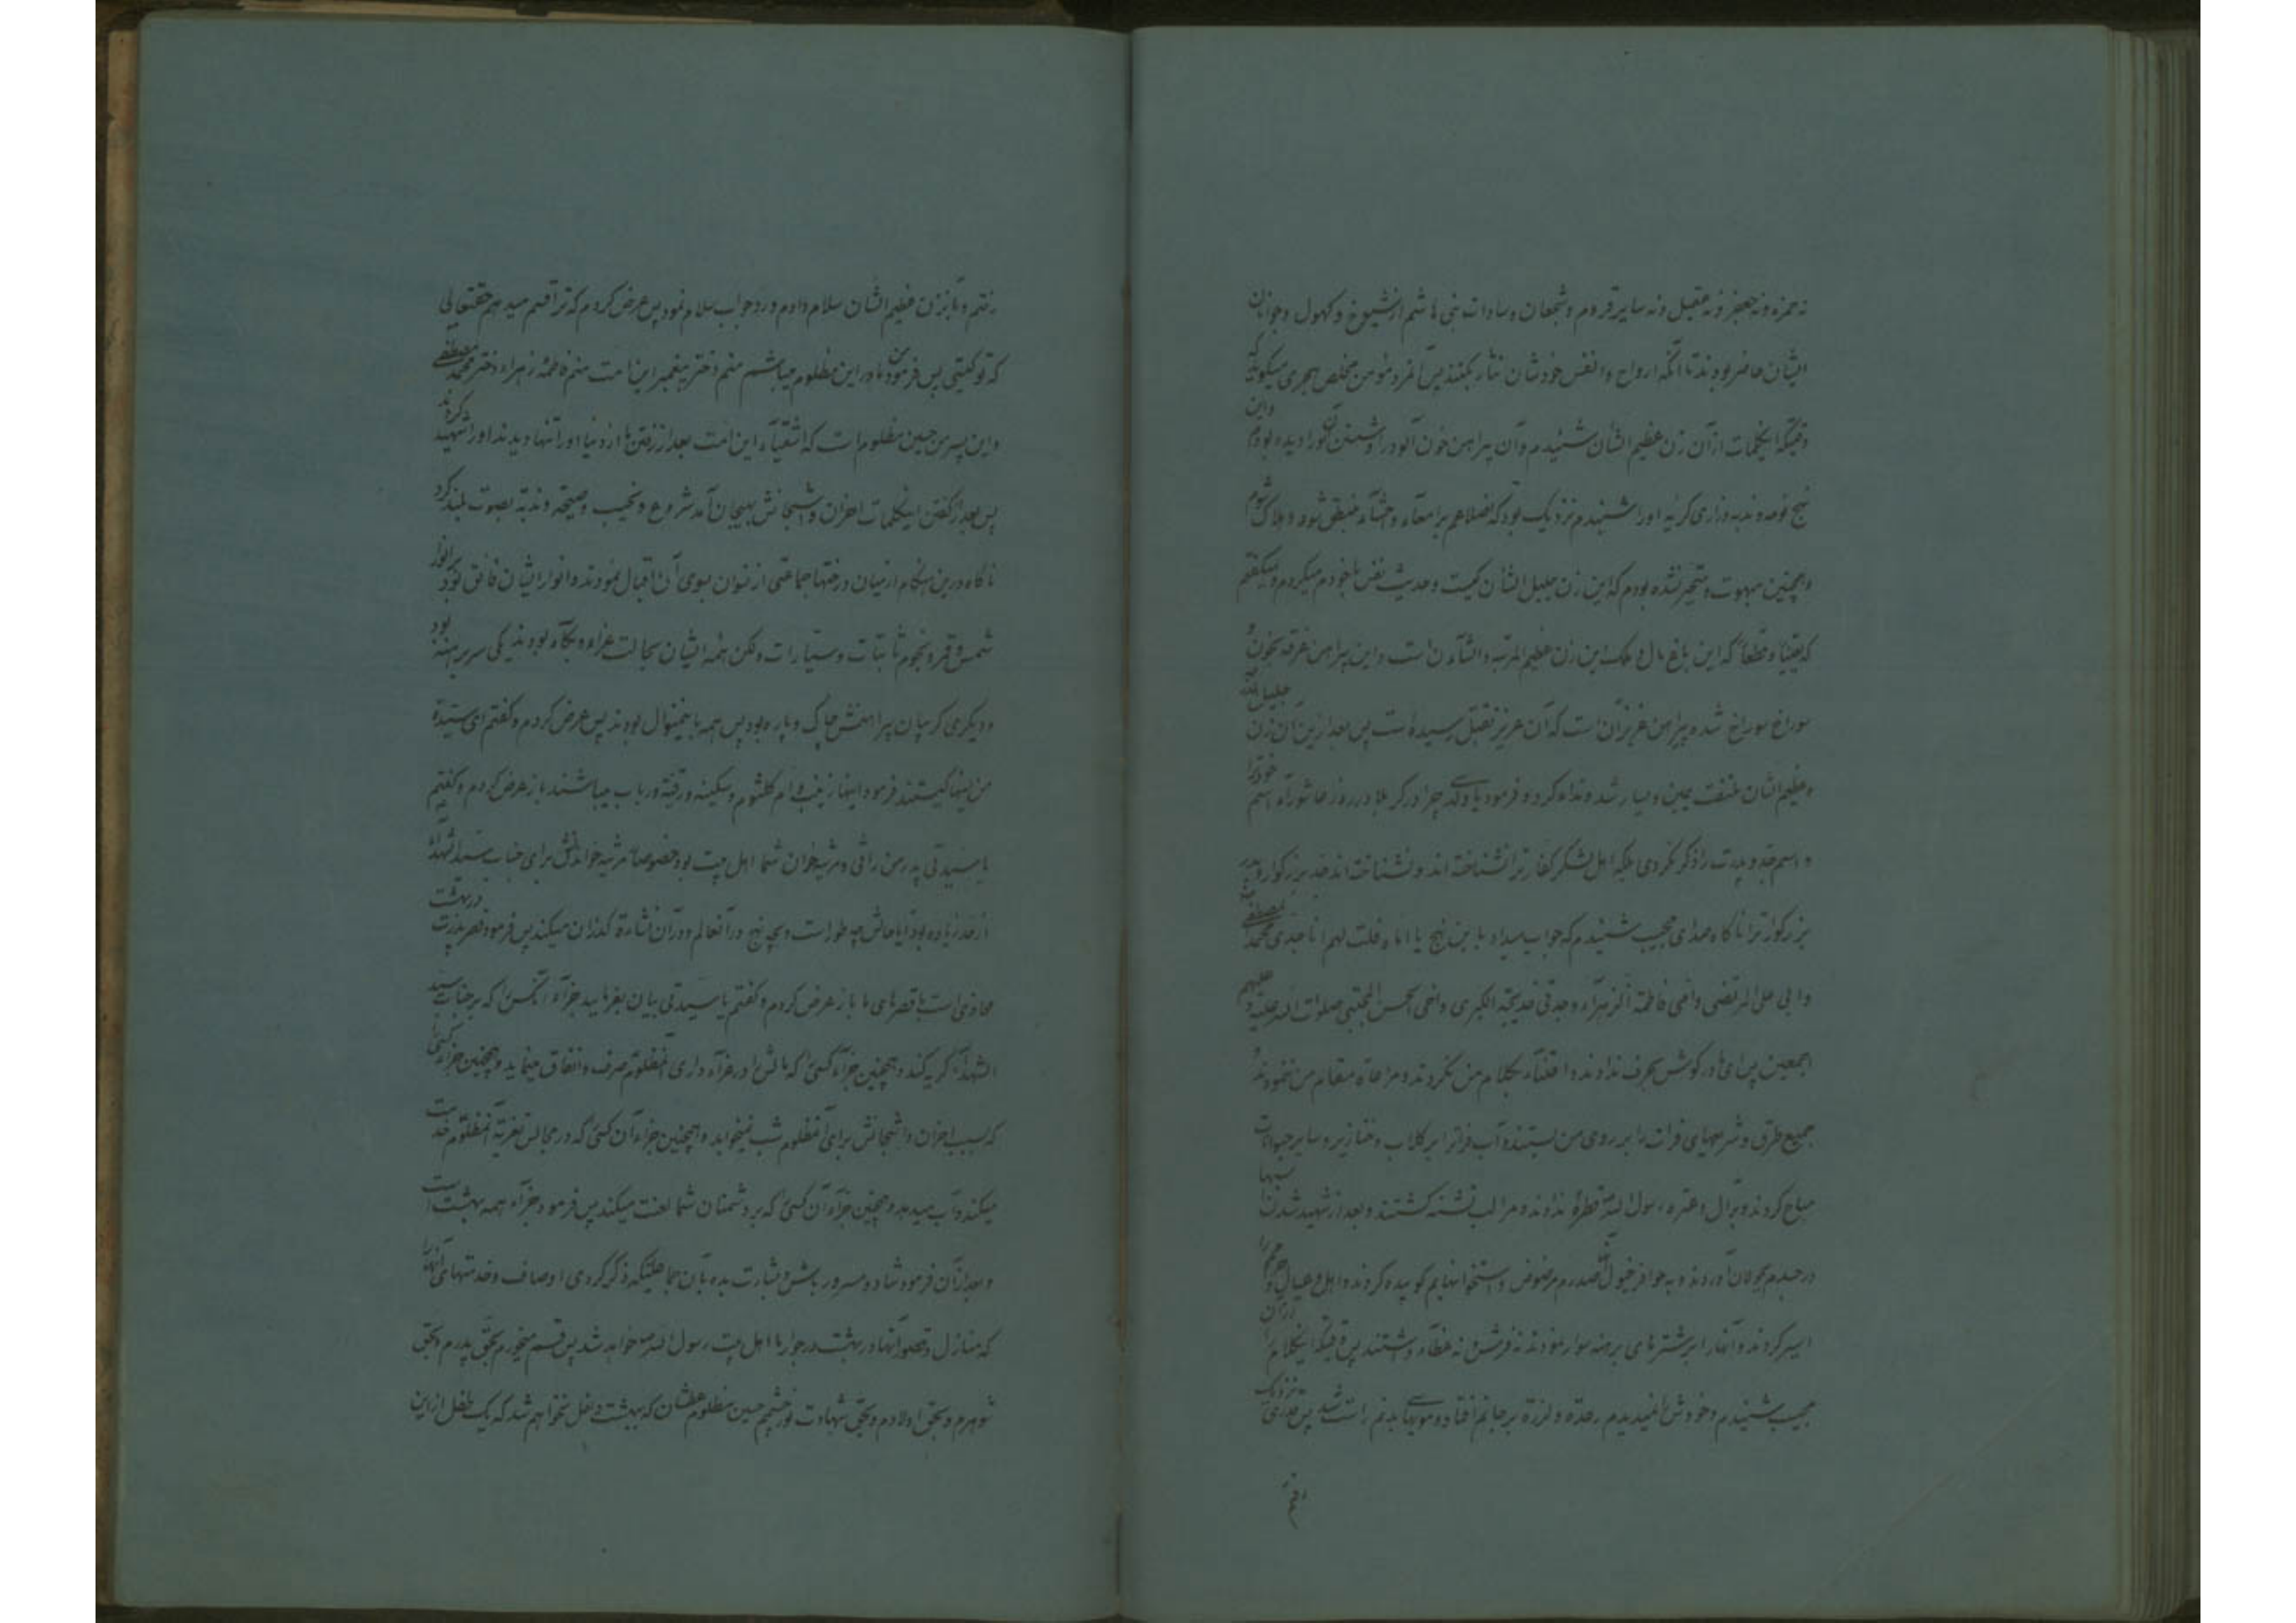 نه حمزه و نه جعفر و نه عقیل و نه سایر قروم و شجعان و سادات بنی هاشم از شیوخ و کهول و جوانان
ایشان حاضر بودند تا آنکه ارواح و انفس خودشان نثار بکنند پس آنمرد مؤمن مخلص هجری میگوید که
وقتیکه اینکلمات از آن زن عظیم الشان شنیدم و آن پیراهن خون آلود را و شستن آنرا دیده بودم و این
نهج نوحه و ندبه و زاری گریه او را شنیدم نزدیک بود که اضلاعم بر امعاء و احشاء منطبق شود و هلاک شوم
و همچنین مبهوت و متحیر شده بودم که این زن جلیل الشان کیست و حدیث نفس با خودم میکردم و میگفتم
که یقینا و قطعا که این باغ مال و ملک این زن عظیم المرتبه و الشان است و این پیراهن غرقه بخون و
سوراخ سوراخ شده پیراهن عزیز آن است که آن عزیز بقتل رسیده است پس بعد از این آن زن جلیل القدر
و عظیم الشان ملتفت یمین و یسار شد و نداء کرد و فرمود یا ولدی چرا در کربلا در روز عاشوراء اسم خود را
و اسم جد و پدرت را ذکر نکردی بلکه اهل لشکر کفار ترا نشناخته اند و نشناخته اند جد بزرگوار و پدر
بزرگوار ترا ناگاه صدای مجیب شنیدم که جواب میداد باین نهج یا اماه و قلت لهم انا جدی محمد مصطفی
و ابی علی المرتضی و امی فاطمة الزهراء و جدتی خدیجة الکبری و اخی الحسن المجتبی صلوات الله علیه و علیهم
اجمعین پس اینها در گوش بحرف ندادند و اعتناء بکلام من نکردند و مراعاة مقام من ننمودند و
جمیع طرق و شریعهای فرات را بر روی من بستند و آب فرات را بر کلاب و خنازیر و سایر حیوانات
مباح کردند و بر آل و عترة رسول الله ص قطرهٔ ندادند و مرا لب تشنه کشتند و بعد از شهید شدن اسبها
در جسدم بجولان آوردند و به حوافر خیول صدرم مرضوض و استخوانهایم کوبیده کردند و اهل و عیال و حرم را
اسیر کردند و آنها را بر شترهای برهنه سوار نمودند نه فرش نه غطاء داشتند پس وقتیکه اینکلام را از آن
مجیب شنیدم و خودش را نمیدیدم رعده و لرزه بر جانم افتاد و مویهای بدنم راست شد پس قدری نزدیک
رفتم
رفتم و بآنزن عظیم الشان سلام دادم و رد جواب سلام نمود پس عرض کردم که ترا قسم میدهم حقتعالی
که تو کیستی پس فرمود من مادر این مظلوم میباشم منم دختر پیغمبر این امت منم فاطمه زهراء دختر محمد مصطفی
و این پسر من حسین مظلوم است که اشقیاء این امت بعد از رفتن ما از دنیا او را تنها دیدند او را شهید کردند
پس بعد از گفتن اینکلمات احزان و اشجانش بهیجان آمد شروع و نحیب و صیحه و ندبه بصوت بلند کرد
ناگاه در این هنگام از میان درختها جماعتی از نسوان بسوی آن اقبال نمودند و انوار ایشان فائق بود بر انوار
شمس و قمر و نجوم ثابتات و سیارات ولکن همه ایشان بحالت عزاء و بکاء بودند یکی سر برهنه بود
و دیگری گریبان پیراهنش چاک و پاره بود پس همه باینمنوال بودند پس عرض کردم و گفتم ای سیدة
من اینها کیستند فرمود اینها زینب و ام کلثوم و سکینه و رقیه و رباب میباشند باز عرض کردم و گفتم
یا سیدتی پدر من راثی و مرثیه خوان شما اهل بیت بود خصوصا مرثیه خواندنش برای جناب سید الشهداء
از حد زیاده بود آیا حالش چه طور است و بچه نهج در آنعالم و در آن نشاءة گذران میکند پس فرمود قصر پدرت در بهشت
محاذی است با قصرهای ما باز عرض کردم و گفتم یا سیدتی بیان بفرمایید جزاء آنکس که بر جناب سید
الشهداء گریه کند و همچنین جزاء کسی که مالش را در عزاء داری آنمظلوم صرف و انفاق مینماید و همچنین جزاء کسی را
که بسبب احزان و اشجانش برای آنمظلوم شب نمیخوابد و همچنین جزاء آن کسی که در مجالس تعزیه آنمظلوم خدمت
میکند و آب میدهد و همچنین جزاء آن کسی که بر دشمنان شما لعنت میکند پس فرمود جزاء همه بهشت است
و بعد از آن فرمود شاد و مسرور باش و بشارت بده بآن جماعتیکه ذکر کردی اوصاف و خدمتهای آنها را
که منازل و محل آنها در بهشت در جوار ما اهل بیت رسول الله ص خواهد شد پس قسم میخورم بحق پدرم و بحق
شوهرم و بحق اولادم و بحق شهادت نور چشمم حسین مظلوم عطشان که ببهشت داخل نخواهم شد که یک طفل از این